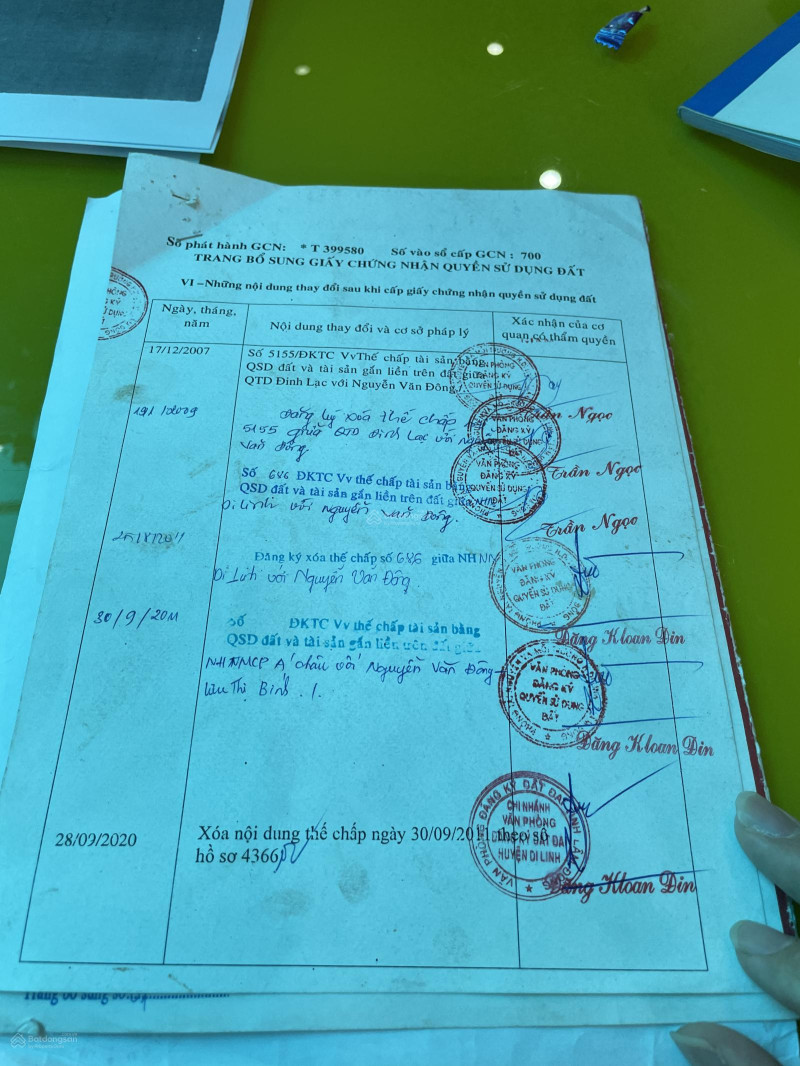 Số phát hành GCN: * T 399580 Số vào sổ cấp GCN : 700
TRANG BỔ SUNG GIẤY CHỨNG NHẬN QUYỀN SỬ DỤNG ĐẤT
VI –Những nội dung thay đổi sau khi cấp giấy chứng nhận quyền sử dụng đất
Ngày, tháng, năm
Nội dung thay đổi và cơ sở pháp lý
Xác nhận của cơ quan có thẩm quyền
17/12/2007
Số 5155/ĐKTC VvThế chấp tài sản bằng
QSD đất và tài sản gắn liền trên đất giữa
QTD Đinh Lạc với Nguyễn Văn Đông.
VĂN PHÒNG
ĐĂNG KÝ
QUYỀN SỬ DỤNG
Trần Ngọc
Đăng ký xóa thế chấp
5155 giữa QTD Đinh Lạc với
Văn Đông.
VĂN PHÒNG
ĐĂNG KÝ
QUYỀN SỬ DỤNG
ĐẤT
Trần Ngọc
Số 686 ĐKTC Vv thế chấp tài sản bằng
QSD đất và tài sản gắn liền trên đất giữa NHNN
Di Linh với Nguyễn Văn Đông.
VĂN PHÒNG
ĐĂNG KÝ
QUYỀN SỬ DỤNG
ĐẤT
Trần Ngọc
Đăng ký xóa thế chấp số 686 giữa NHNN
Di Linh với Nguyễn Văn Đông
VĂN PHÒNG
ĐĂNG KÝ
QUYỀN SỬ DỤNG
ĐẤT
Đăng Kloan Din
30/9/2011
Số ĐKTC Vv thế chấp tài sản bằng
QSD đất và tài sản gắn liền trên đất giữa
NHTMCP Á Châu với Nguyễn Văn Đông –
Lưu Thị Bính ./.
VĂN PHÒNG
ĐĂNG KÝ
QUYỀN SỬ DỤNG
ĐẤT
Đăng Kloan Din
28/09/2020
Xóa nội dung thế chấp ngày 30/09/2011 theo số
hồ sơ 4366
CHI NHÁNH
VĂN PHÒNG
ĐĂNG KÝ ĐẤT ĐAI
HUYỆN DI LINH
Đăng Kloan Din
Batdongsan